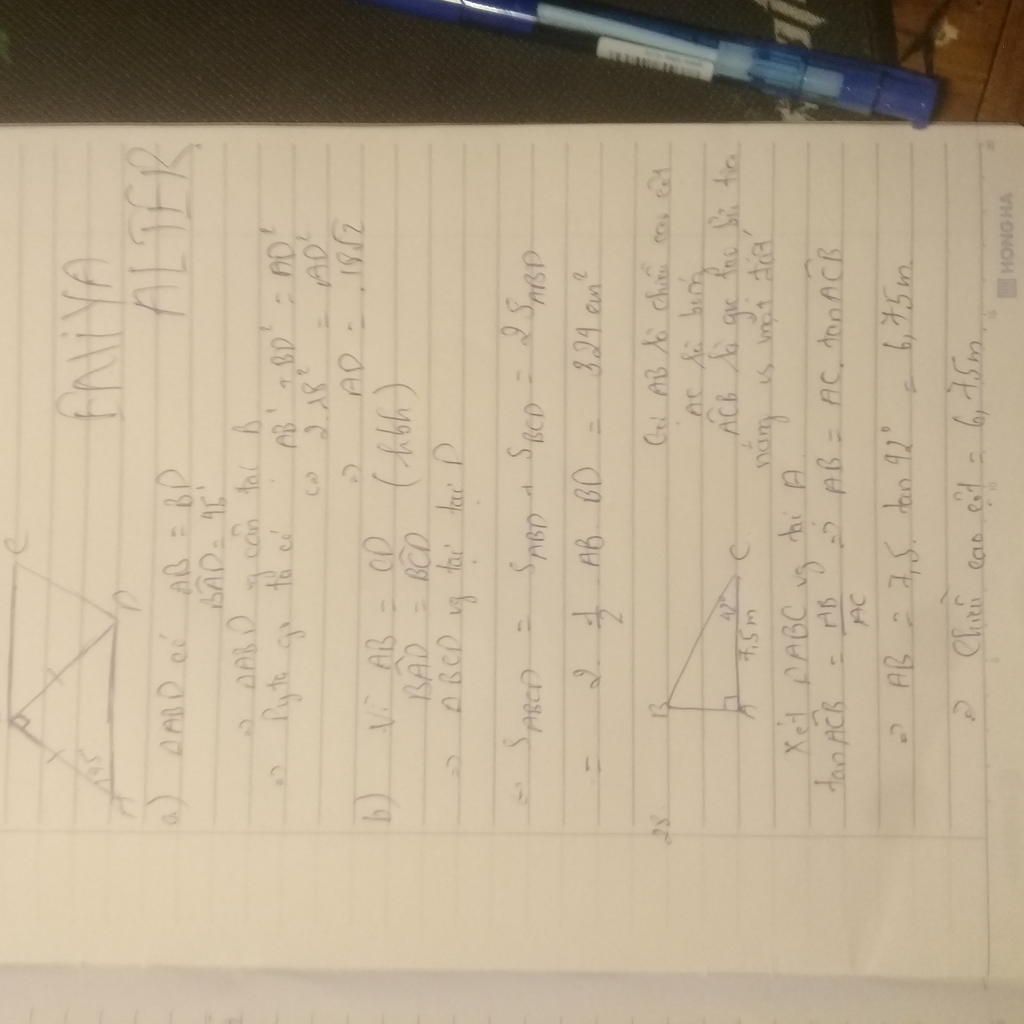 PAIYA
ALTER
B
C
A
D
45°
a) ΔABD có AB = BD
BAD̂ = 45°
=> ΔABD vg cân tại B
=> Pytago ta có AB² + BD² = AD²
<=> 2AB² = AD²
=> AD = 18√2
b) Vì AB = CD (hbh)
BAD̂ = BCD̂
=> ΔBCD vg tại D
=> S_ABCD = S_ABD + S_BCD = 2 S_ABD
= 2 . 1/2 . AB . BD = 324 cm²
28.
B
A
C
42°
7,5m
Gọi AB là chiều cao cột
AC là bóng
ACB̂ là góc tạo bởi tia
nắng vs mặt đất
Xét ΔABC vg tại A
tan ACB̂ = AB/AC => AB = AC . tan ACB̂
=> AB = 7,5 . tan 42° = 6,75m.
=> Chiều cao cột = 6,75m.
HONG HA